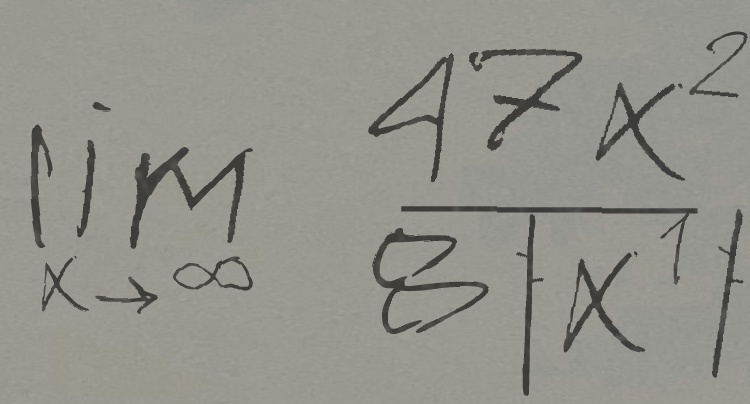 lim x→∞ 47x² / 8|x¹|